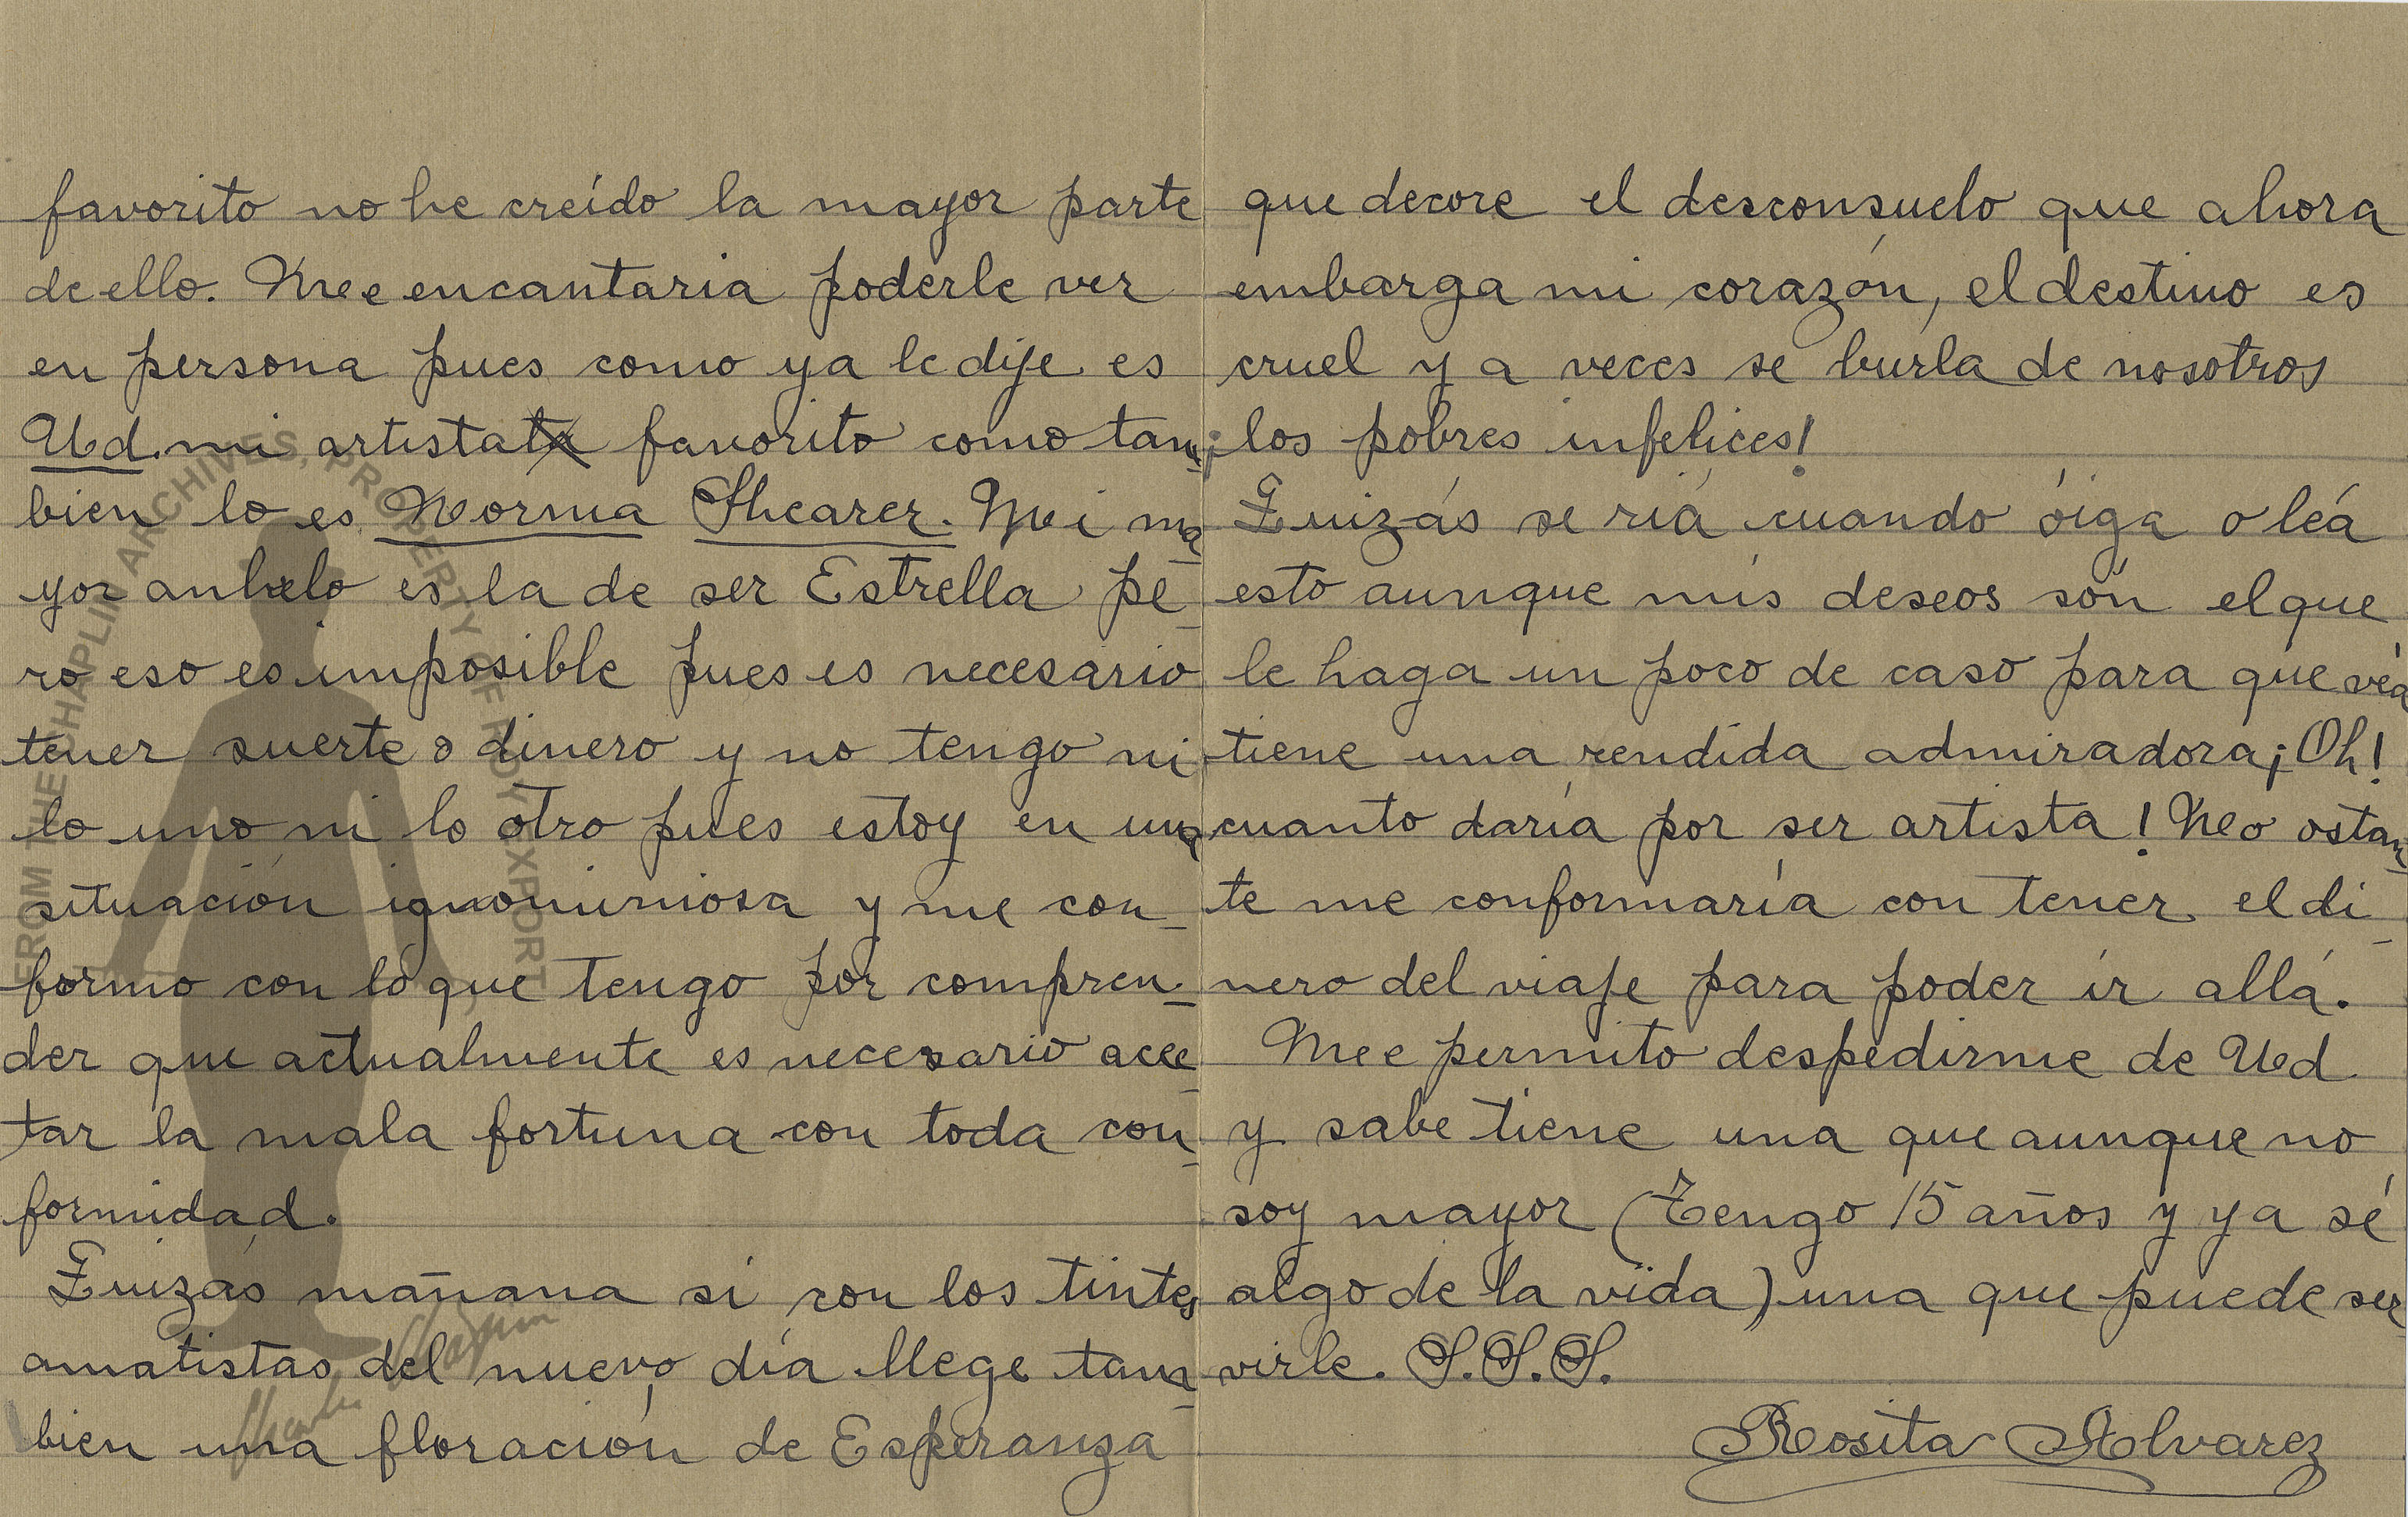 favorito no he creído la mayor parte
de ello. Me encantaria poderle ver
en persona pues como ya le dije es
Ud. mi artista favorito como tam-
bien lo es Norma Shearer. Mi ma
yor anhelo es la de ser Estrella pe-
ro eso es imposible pues es necesario
tener suerte o dinero y no tengo ni
lo uno ni lo otro pues estoy en una
situación ignominiosa y me con-
formo con lo que tengo por compren-
der que actualmente es necesario ace-
tar la mala fortuna con toda con-
formidad.
Quizás mañana si con los tintes
amatistas del nuevo día llege tam-
bien una floración de Esperanza
que decore el desconsuelo que ahora
embarga mi corazón, el destino es
cruel y a veces se burla de nosotros
¡los pobres infelices!
Quizás se ría cuando óiga o léa
esto aunque mis deseos són el que
le haga un poco de caso para que véa
tiene una rendida admiradora ¡Oh!
cuanto daría por ser artista! No ostan-
te me conformaría con tener el di-
nero del viaje para poder ir allá.
Me permito despedirme de Ud
y sabe tiene una que aunque no
soy mayor (Tengo 15 años y ya sé
algo de la vida) una que puede ser-
virle. S.S.S.
Rosita Alvarez
FROM THE CHAPLIN ARCHIVES, PROPERTY OF ROY EXPORT
Charlie Chaplin